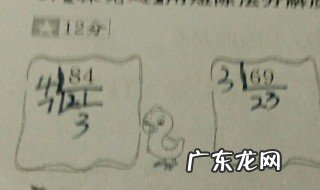 12分
4 84 3 69
7 21 23
3
广东龙网